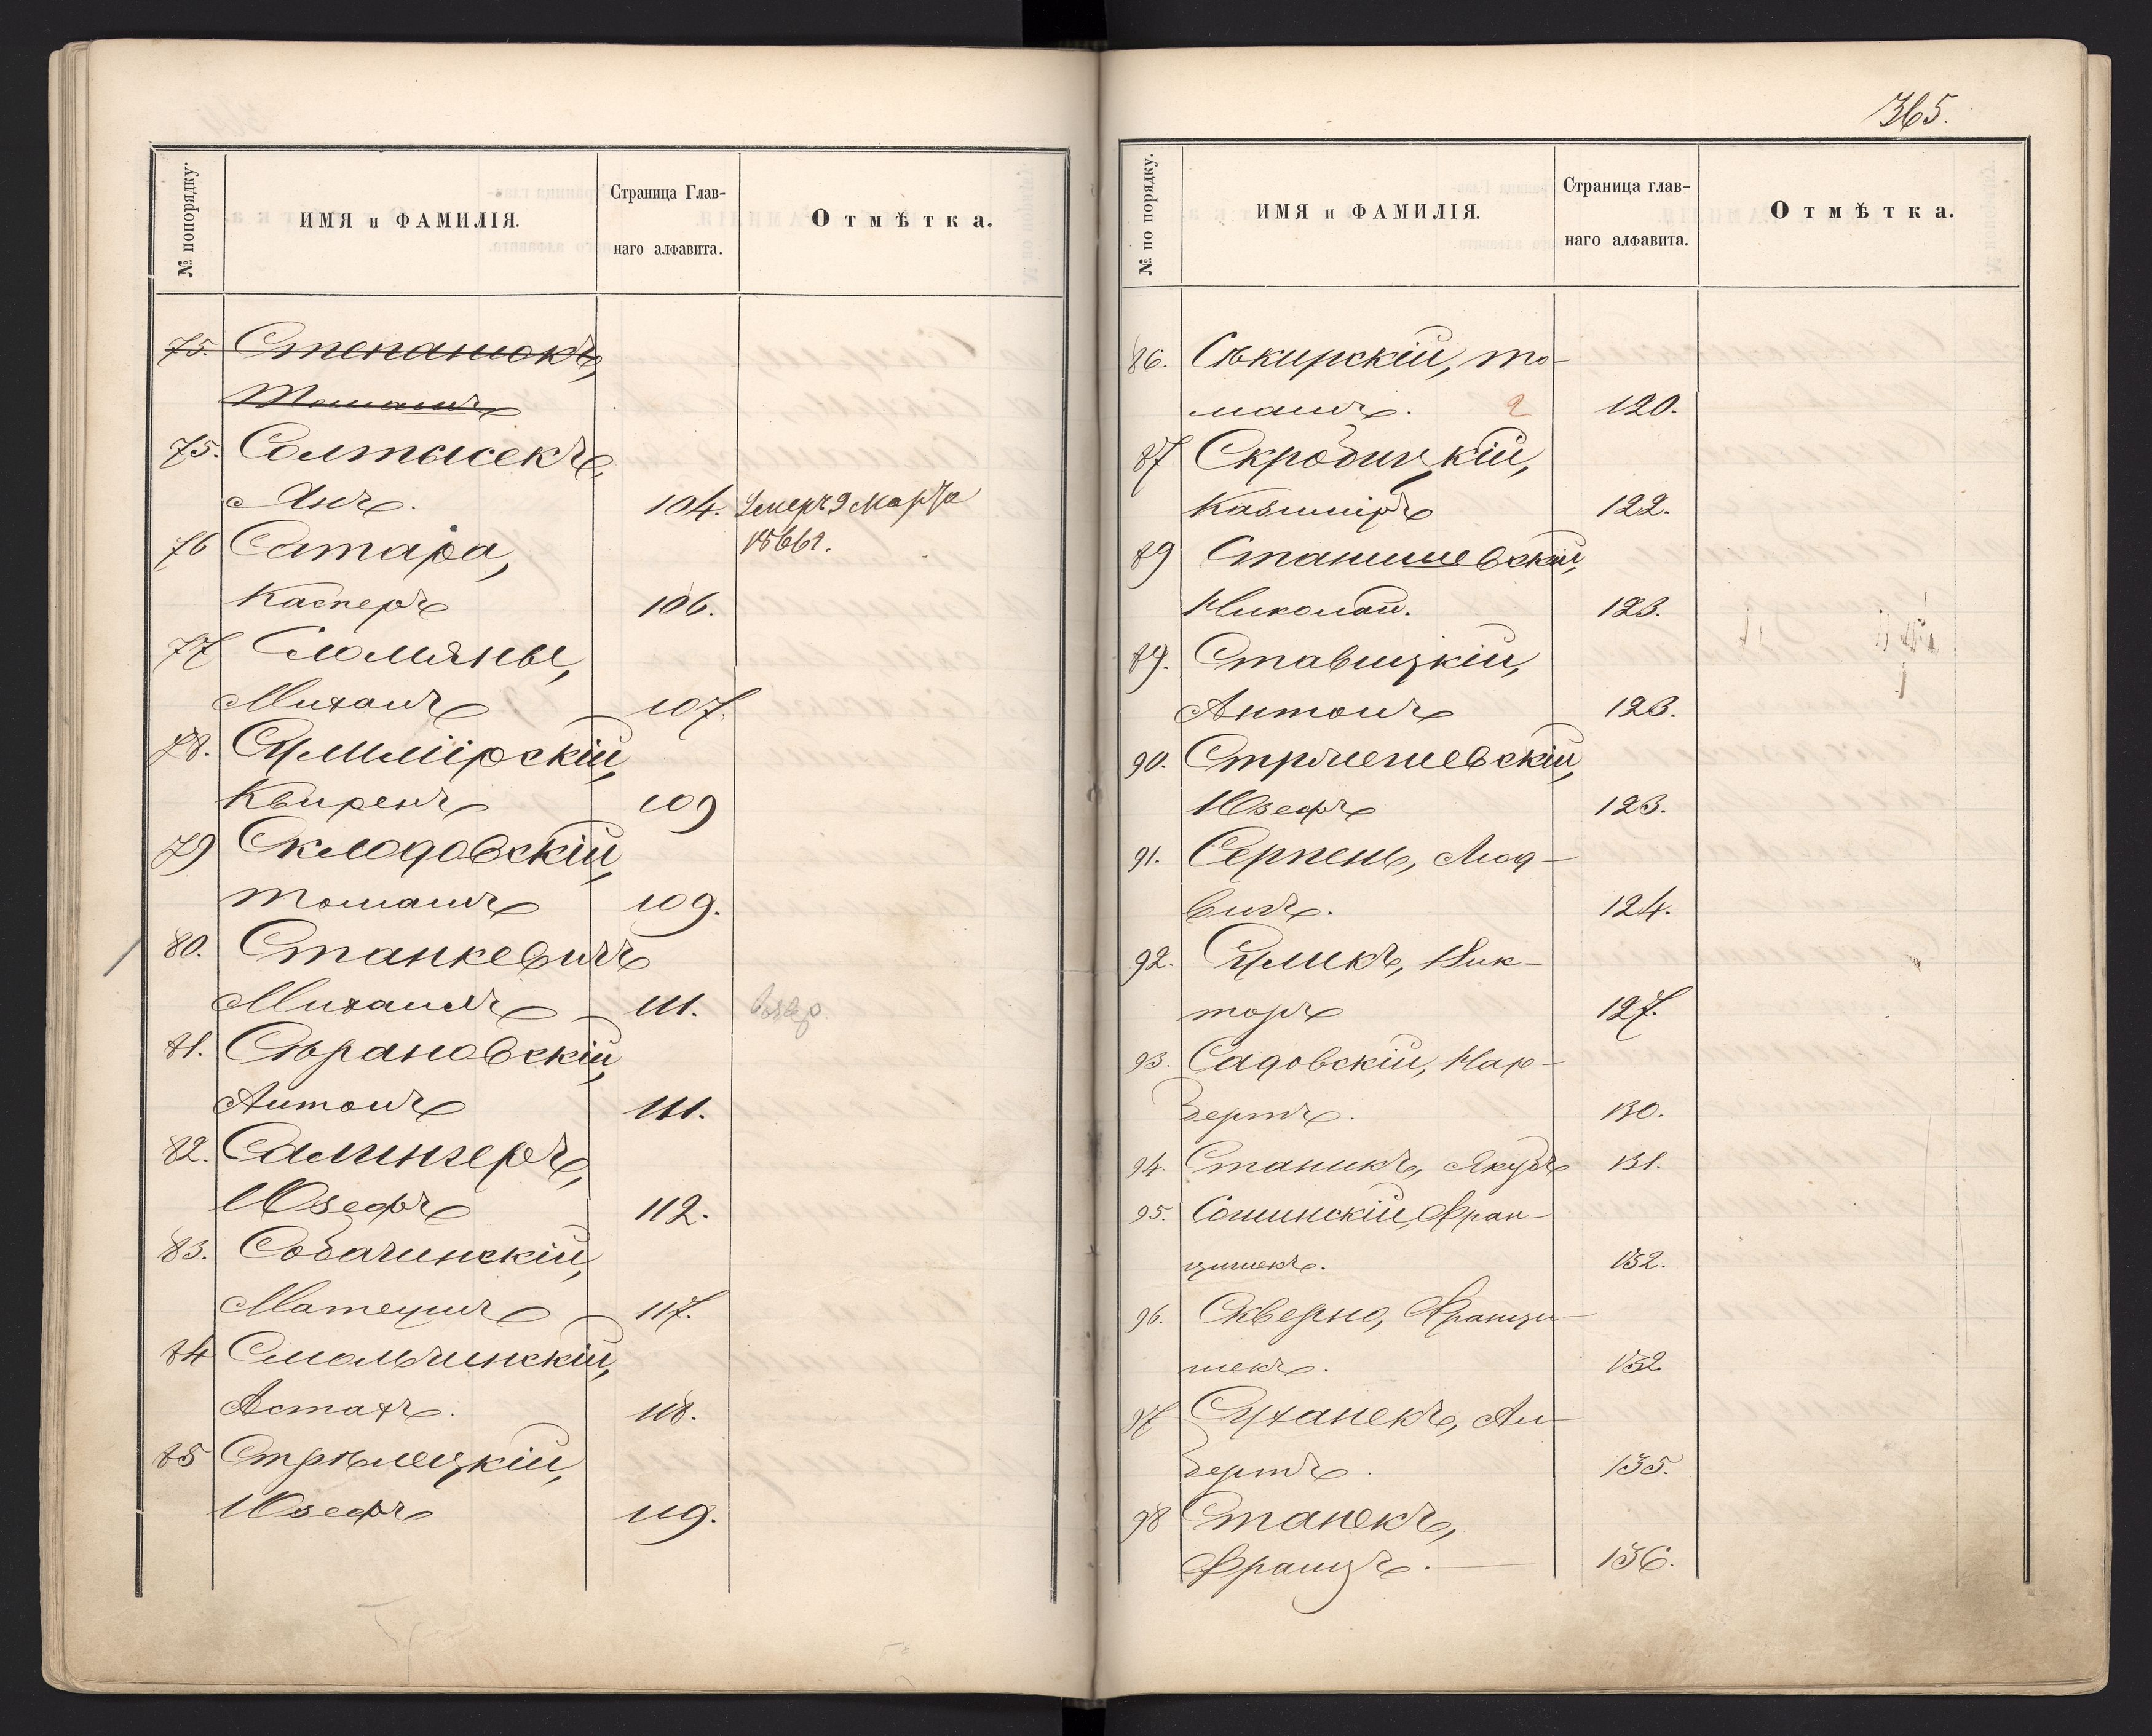 № попорядку.
ИМЯ и ФАМИЛІЯ.
Страница Глав-
наго алфавита.
Отмѣтка.
75. Степанюкъ,
Томашъ
75. Солтысекъ,
Янъ. 104. Умеръ 9 Марта
1866г.
76 Сатара,
Касперъ 106.
77 Сломяны,
Михаилъ 107.
78.
Квиренъ 109
79 Склодовскій,
Томашъ 109.
80. Станкевичъ
Михаилъ 111.
81. Сѣрановскій,
Антонъ 111.
82. Салингеръ,
Юзефъ 112.
83. Собачинскій,
Матеушъ 117.
84 Смольчинскій,
Астахъ. 118.
85 Стрѣлецкій,
Юзефъ 119.
365.
№ по порядку.
ИМЯ и ФАМИЛІЯ.
Страница глав-
наго алфавита.
Отмѣтка.
86. Сѣкирскій, То-
машъ. 2 120.
87 Скробицкій,
Казиміръ 122.
89 Станишевскій,
Николай. 123.
89. Ставицкій,
Антонъ 123.
90.
Юзефъ 123.
91. Серпень, Люд-
вигъ. 124.
92. Вик-
торъ 127.
93. Садовскій, Нар-
бертъ. 130.
94. Станикъ, Якубъ 131.
95. Сошинскій, Фран-
цишекъ. 132.
96. Скверно, Франци-
шекъ. 132.
97 Суханекъ, Ал-
бертъ. 135.
98 Станекъ,
Францъ. 136.